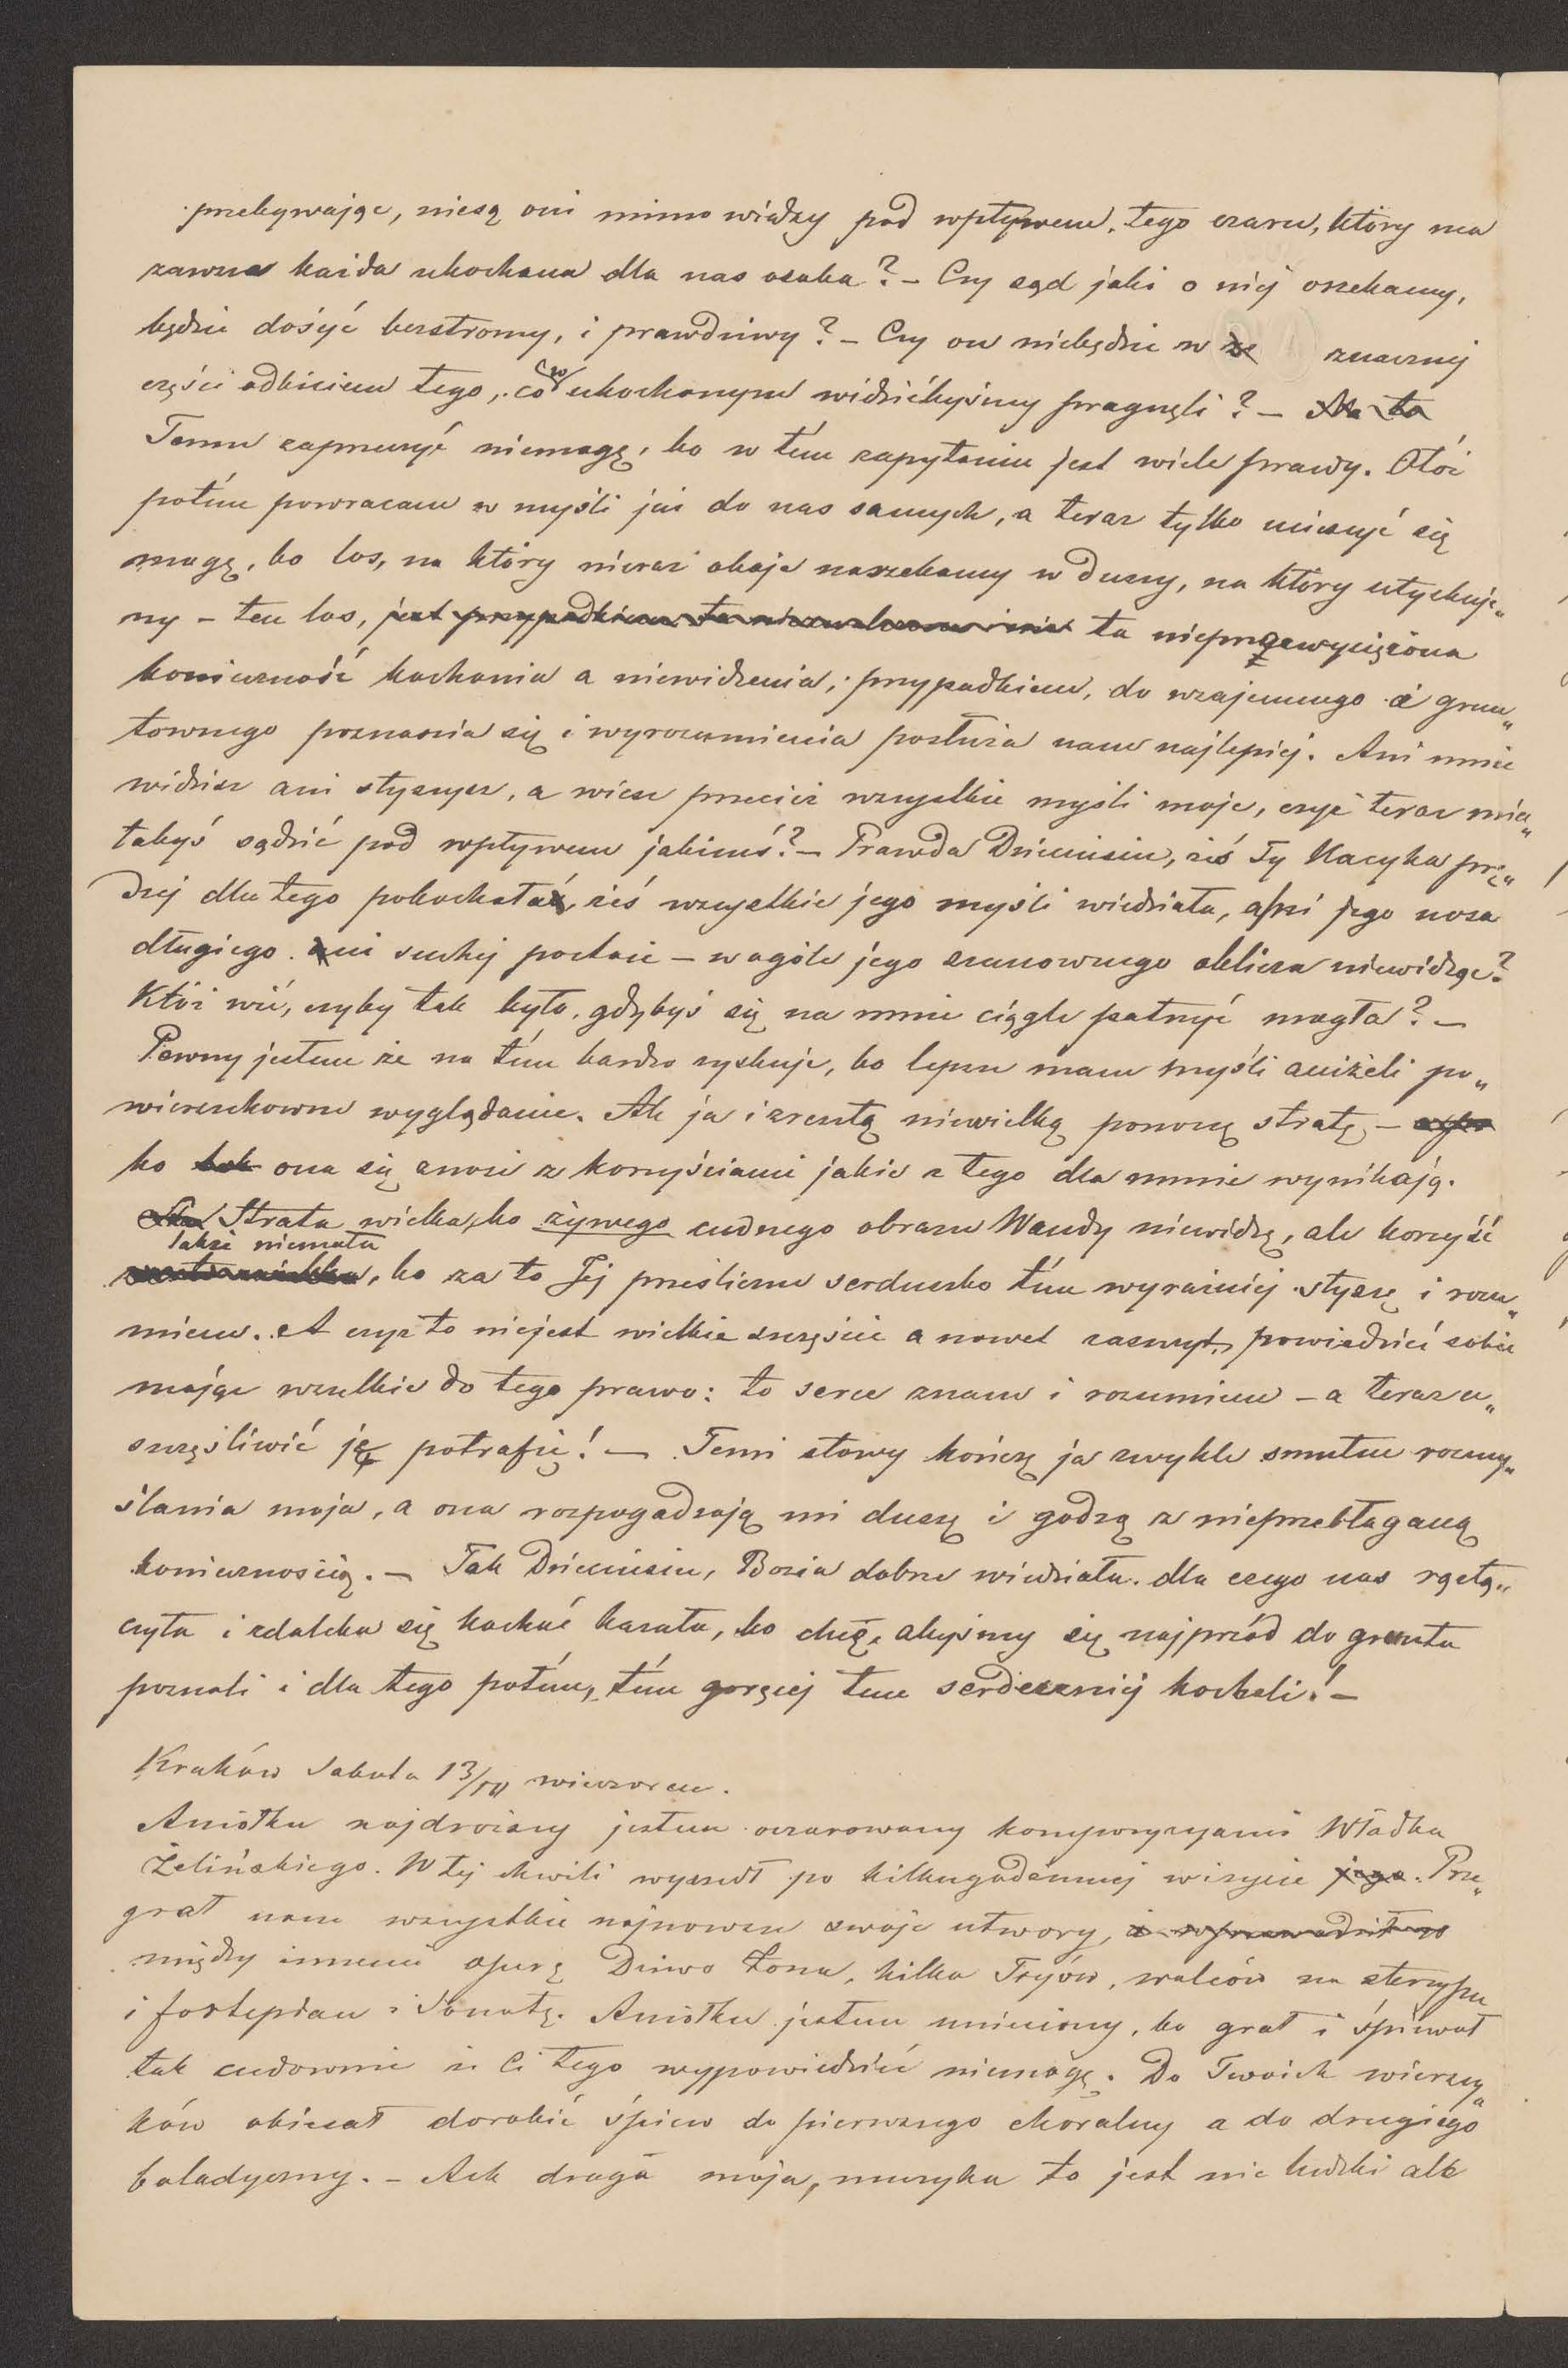 przebywając, niesą oni mimowiedzy pod wpływem, tego czaru, który ma
zawsze każda ukochana dla nas osoba? – Czy sąd jaki o niéj orzekamy,
będzie dosyć bezstronny, i prawdziwy? – Czy on niebędzie w znacznej
części odbiciem tego, co w ukochanym widziećbyśmy pragnęli? – Na to
Temu zaprzeczyć niemogę, bo w tém zapytaniu jest wiele prawdy. Otóż
potém powracam w myśli już do nas samych, a teraz tylko cieszyć się
mogę, bo los, na który nieraz oboje narzekamy w duszy, na który utyskuje„
my – ten los, jest przypadkiem ta nieprzezwyciężona
konieczność kochania a niewidzenia, przypadkiem, do wzajemnego i grun„
townego poznania się i wyrozumienia posłuża nam najlepiéj. Ani mnie
widzisz ani słyszysz, a wiesz przecież wszystkie myśli moje, czyż teraz mia„
łabyś sądzić pod wpływem jakimś? – Prawda Dzieciusiu, żeś Ty Kacyka prę„
dzej dla tego pokochała, żeś wszystkie jego myśli wiedziała, ani jego nosa
długiego ani suchej postaci – wogóle jego szanownego oblicza niewidząc?
Któż wié, czyby tak było, gdybyś się na mnie ciągle patrzyć mogła? –
Pewny jestem że na tém bardzo zyskuję, bo lepsze mam myśli aniżeli po„
wierzchowne wyglądanie. Ale ja i zresztą niewielką ponoszę stratę, –
bo ona się znosi z korzyściami jakie z tego dla mnie wynikają.
Strata wielka, bo żywego cudnego obrazu Wandy niewidzę, ale korzyść
także niemała
, bo za to Jéj prześliczne serduszko tém wyraźniéj słyszę i rozu„
miem. A czyż to niejest wielkie szczęście a nawet zaszczyt, powiedziéć sobie
mając wszelkie do tego prawo: to serce znam i rozumiem – a teraz u„
szczęśliwić ję potrafię! – Temi słowy kończę ja zwykle smutne rozmy„
ślania moje, a one rozpogadzają mi duszę i godzą z nieprzebłaganą
koniecznością. – Tak Dzieciusiu, Bozia dobrze wiedziała dla czego nas rozłą„
czyła i zdaleka się kochać kazała, bo chce, abyśmy się najprzód do gruntu
poznali i dla tego potém, tém goręcej tem serdeczniéj kochali! –
Kraków Sobota 13/IV wieczorem.
Aniołku najdroższy jestem oczarowany kompozycyami Władka
Żelińskiego. W téj chwili wyszedł po kilkugodzinnéj wizycie jego. Prze„
grał nam wszystkie najnowsze swoje utwory, i
między innemi operę Dziwo Żona, kilka Tryów, walców na skrzypce
i fortepian i Sonatę. Aniołku jestem uniesiony, bo grał i śpiewał
tak cudownie że Ci tego wypowiedzieć niemogę. Do Twoich wierszy„
ków obiecał dorobić śpiew do pierwszego chóralny a do drugiego
baladyczny. – Ach droga moja, muzyka to jest nie ludzki ale